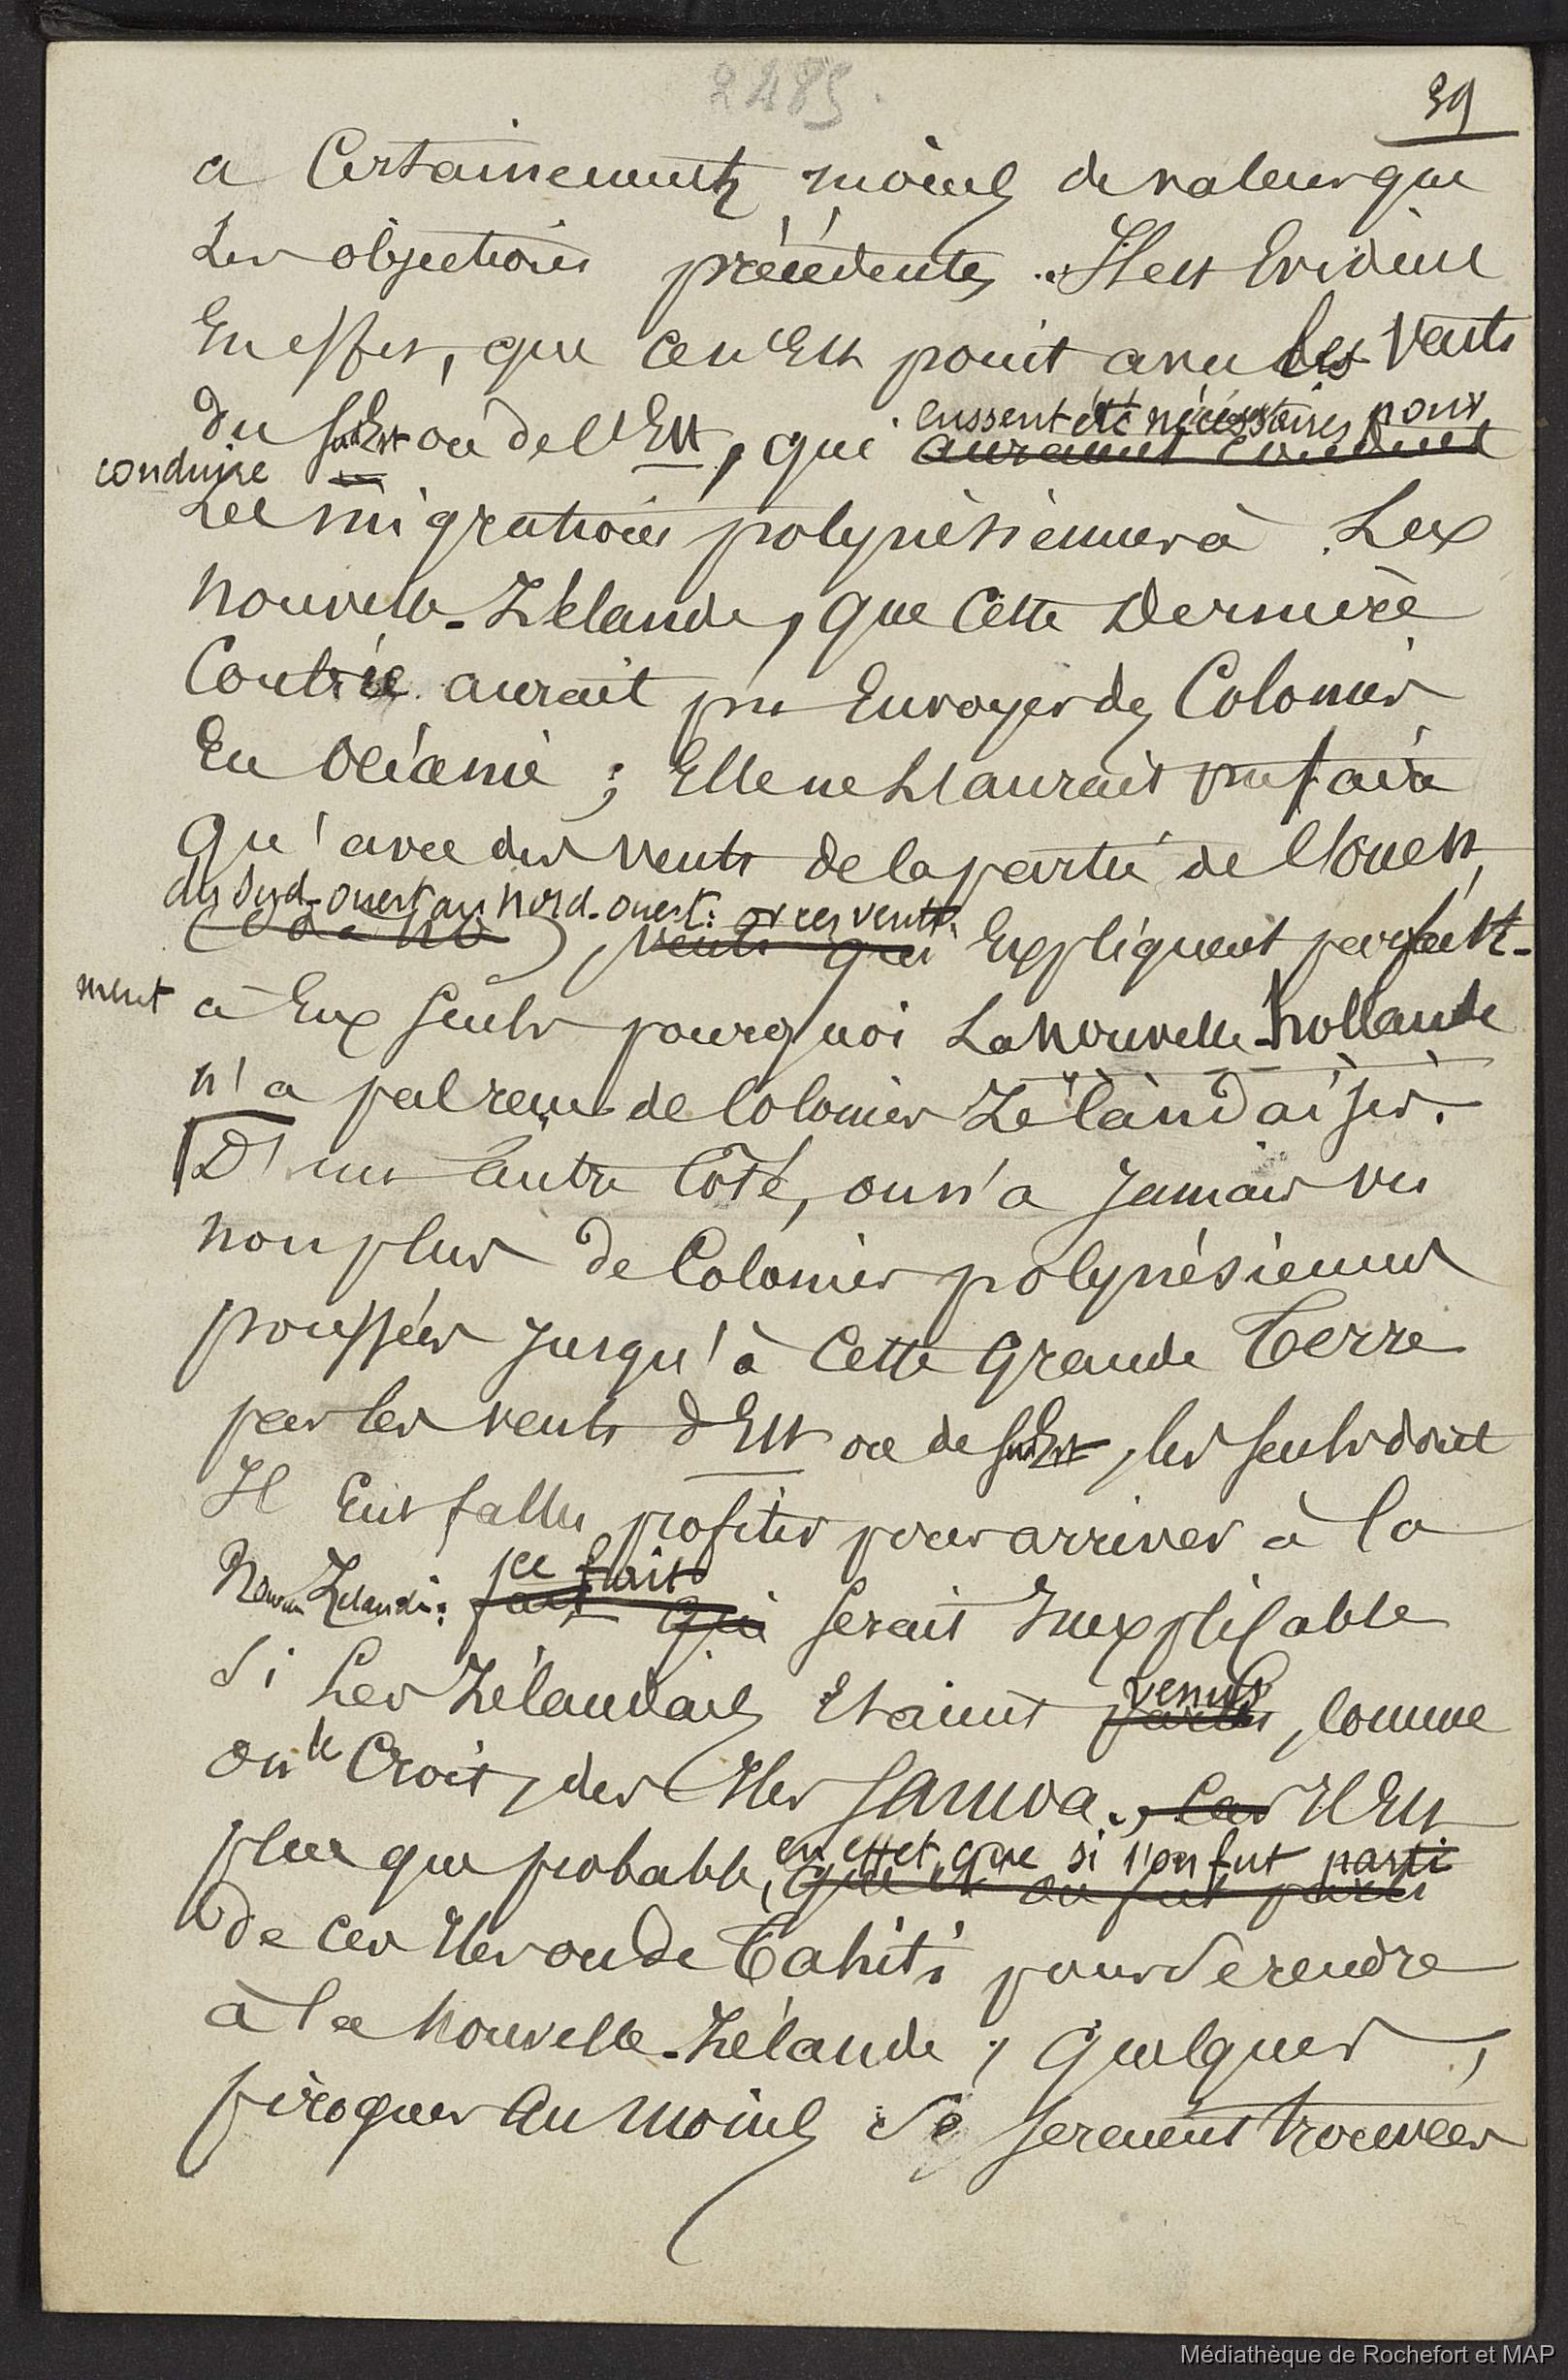 2485.
39
a Certainement moins de valeur que
Les objections précédentes. Il est Evident
En effet, que ce n'Est point avec les Vents
du Sud Est ou de l'Est, que eussent été nécessaires pour
conduire
auraient conduit
Les migrations polynésiennes à La
Nouvelle-Zélande, que Cette Dernière
Contrée aurait pu Envoyer des Colonies
En Océanie ; Elle ne L'aurait pu faire
Qu'avec des Vents de la partie de l'Ouest,
du Sud-ouest au Nord-ouest : or ces vents
(SO à NO), vents qui Expliquent parfaite-
ment à Eux Seuls pourquoi La Nouvelle-Hollande
n'a pas reçu de Colonies Zélandaises.
D'un autre Côté, on n'a Jamais vu
non plus de Colonies polynésiennes
poussées Jusqu'à Cette Grande Terre
par les vents d'Est ou de Sud Est, les seuls dont
Il Eut fallu profiter pour arriver à la
Nouvelle Zélande : ce fait
fait qui Serait Inexplicable
Si Les Zélandais Etaient venus
partis, Comme
on le Croit, des Iles Samoa., Car Il Est
plus que probable, en effet, que si l'on fut parti
que si on fut parti
de Ces Iles ou de Tahiti pour Se rendre
à la Nouvelle-Zélande, Quelques
pirogues Au Moins Se Seraient trouvées
Médiathèque de Rochefort et MAP